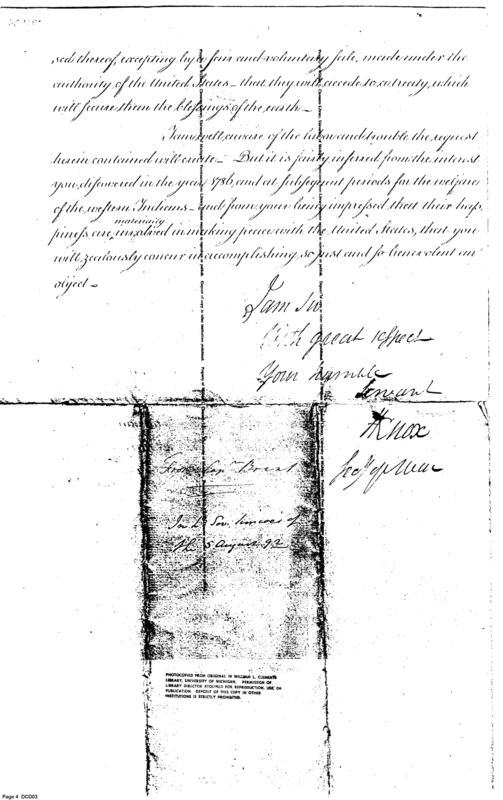 sed thereof, excepting by a fair and voluntary sale, made under the
authority of the United States – that they will accede to a treaty, which
will secure them the blessings of the earth –
I am well aware of the labor and trouble the request
herein contained will create – But it is fairly inferred from the interest
you discovered in the year 1786, and at subsequent periods for the welfare
of the western Indians – and from your being impressed that their hap-
materially
piness are involved in making peace with the United States, that you
will zealously concur in accomplishing so just and so benevolent an
object –
I am Sir
With great respect
Your humble
Servant
H Knox
Secy of War
From Capt Brant
In Lt Gov. Simcoes of
the 5 August 92
PHOTOCOPIED FROM ORIGINAL IN WILLIAM L. CLEMENTS
LIBRARY, UNIVERSITY OF MICHIGAN. PERMISSION OF
LIBRARY DIRECTOR REQUIRED FOR REPRODUCTION, USE OR
PUBLICATION. DEPOSIT OF THIS COPY IN OTHER
INSTITUTIONS IS STRICTLY PROHIBITED.
Page 4 DCD03